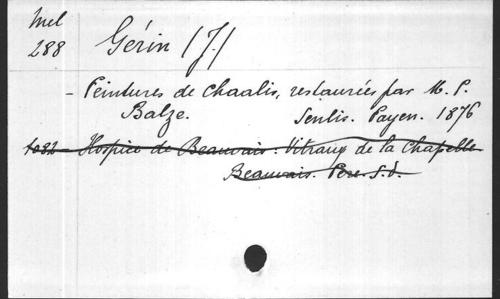 Mel
288
Gérin (J.)
- Peintures de Chaalis, restaurées par M. P.
Balze. Senlis. Payen. 1876
1032 - Hospice de Beauvais. Vitraux de la Chapelle
Beauvais. Pere. S.d.